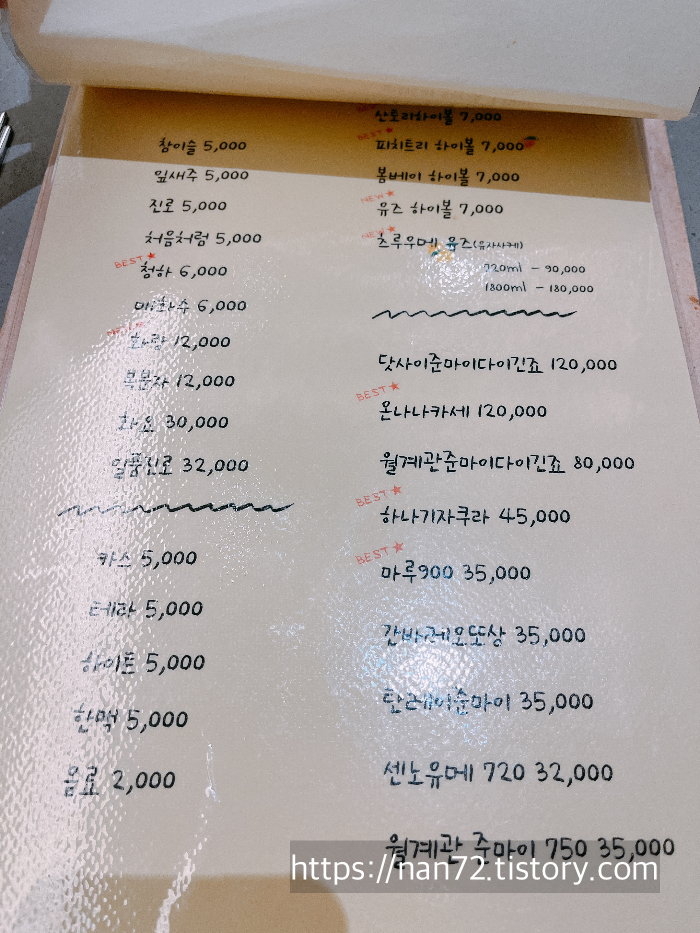 참이슬 5,000
잎새주 5,000
진로 5,000
처음처럼 5,000
BEST★
청하 6,000
매화수 6,000
화랑 12,000
복분자 12,000
화요 30,000
일품진로 32,000
카스 5,000
테라 5,000
하이트 5,000
한맥 5,000
음료 2,000
산토리하이볼 7,000
BEST★
피치트리 하이볼 7,000
봄베이 하이볼 7,000
NEW★
유즈 하이볼 7,000
NEW★
츠루우메 유즈(유자사케)
720ml - 90,000
1800ml - 180,000
닷사이준마이다이긴죠 120,000
BEST★
온나나카세 120,000
월계관준마이다이긴죠 80,000
BEST★
하나기자쿠라 45,000
BEST★
마루900 35,000
간바레오또상 35,000
탄레이준마이 35,000
센노유메 720 32,000
월계관 준마이 750 35,000
https://nan72.tistory.com